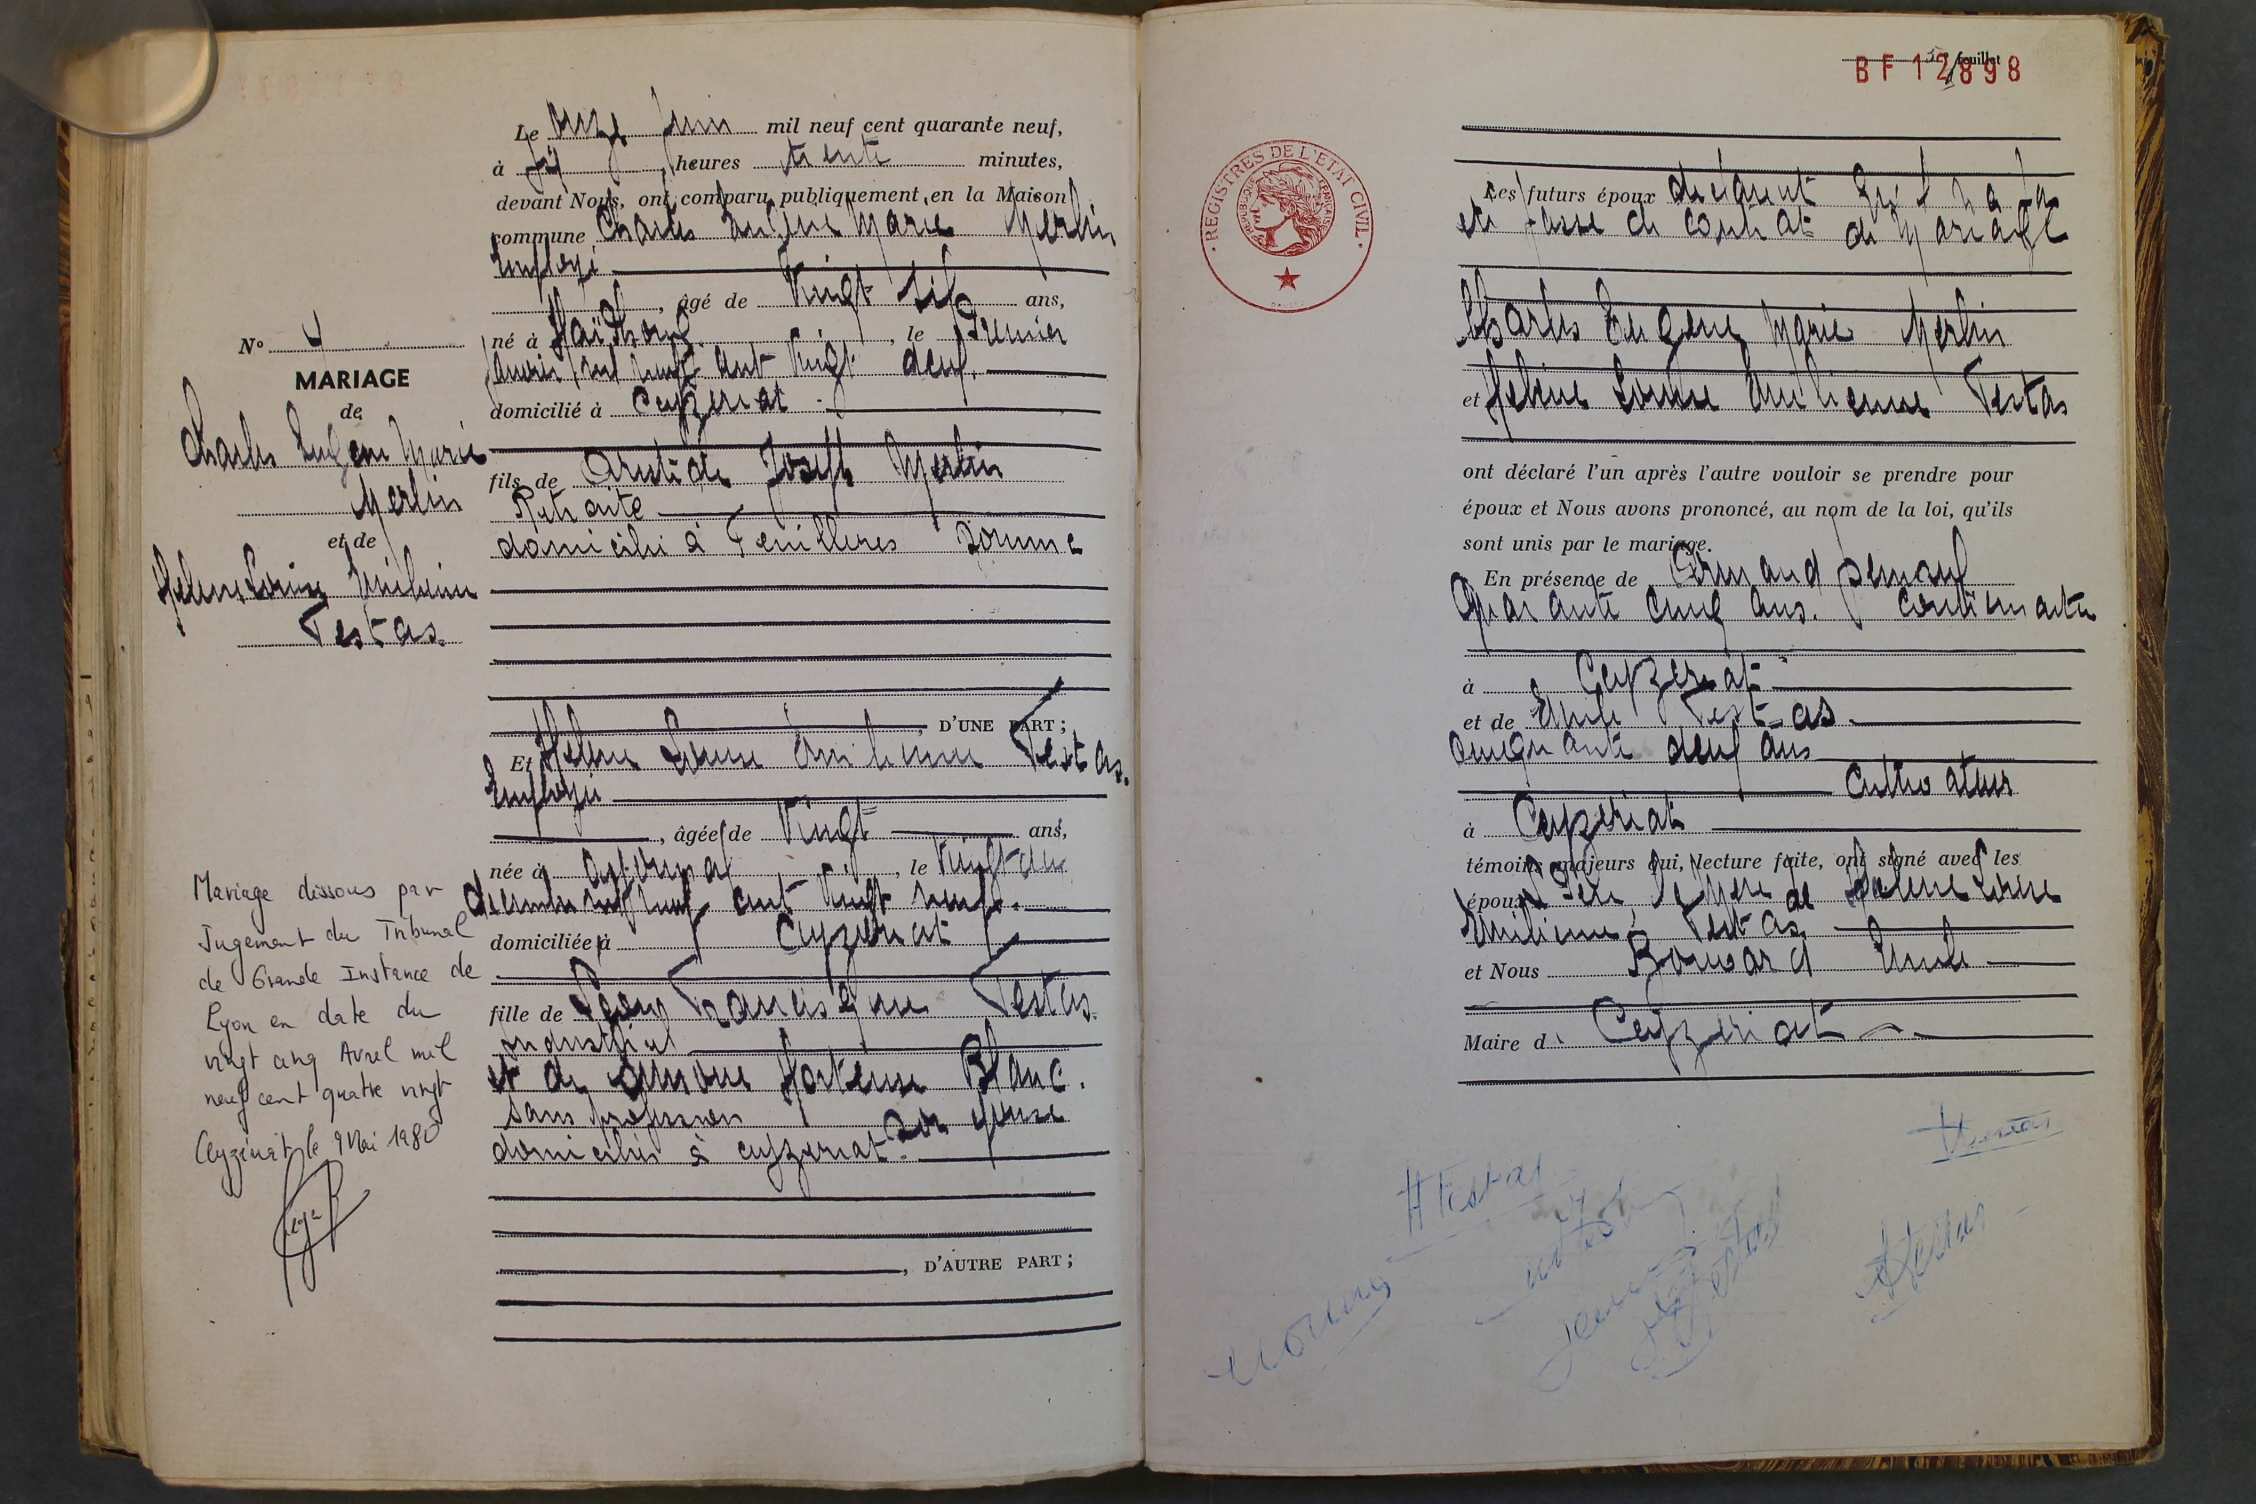 Le onze Juin mil neuf cent quarante neuf,
à dix heures trente minutes,
devant Nous, ont comparu publiquement en la Maison
commune Charles Eugène Marie Merlin
Employé
, âgé de Vingt six ans,
né à , le Premier
Janvier mil neuf cent Vingt deux.
domicilié à Ceyzeriat
fils de Aristide Joseph Merlin
Retraité
domicilié à Feuillères Somme
D'UNE PART;
Et Helene Louise Emilienne Testas.
Employée
, âgée de Vingt ans,
née à , le Vingt
décembre mil neuf cent Vingt huit.
domiciliée à Ceyzeriat
fille de Francisque Testas.
Industriel
et de Hortense Blanc.
sans profession son épouse
domiciliés à Ceyzeriat.
, D'AUTRE PART;
No 4
MARIAGE
de
Charles Eugene Marie
Merlin
et de
Helene Louise Emilienne
Testas
Mariage dissous par
Jugement du Tribunal
de Grande Instance de
Lyon en date du
vingt cinq Avril mil
neuf cent quatre vingt
Ceyzériat le 9 Mai 1980
feuillet
BF 12898
REGISTRES DE L'ETAT CIVIL
REPUBLIQUE FRANÇAISE
Les futurs époux déclarent qu'il n'a pas
été passé de contrat de Mariage
Charles Eugene Marie Merlin
et Helene Louise Emilienne Testas
ont déclaré l'un après l'autre vouloir se prendre pour
époux et Nous avons prononcé, au nom de la loi, qu'ils
sont unis par le mariage.
En présence de Armand
Quarante cinq ans.
à Ceyzeriat
et de Emile Testas
cinquante deux ans
Cultivateur
à Ceyzeriat
témoins majeurs qui, lecture faite, ont signé avec les
époux le Père, la Mère de Helene Louise
Emilienne Testas
et Nous Bouvard Emile
Maire d Ceyzeriat
HTestas